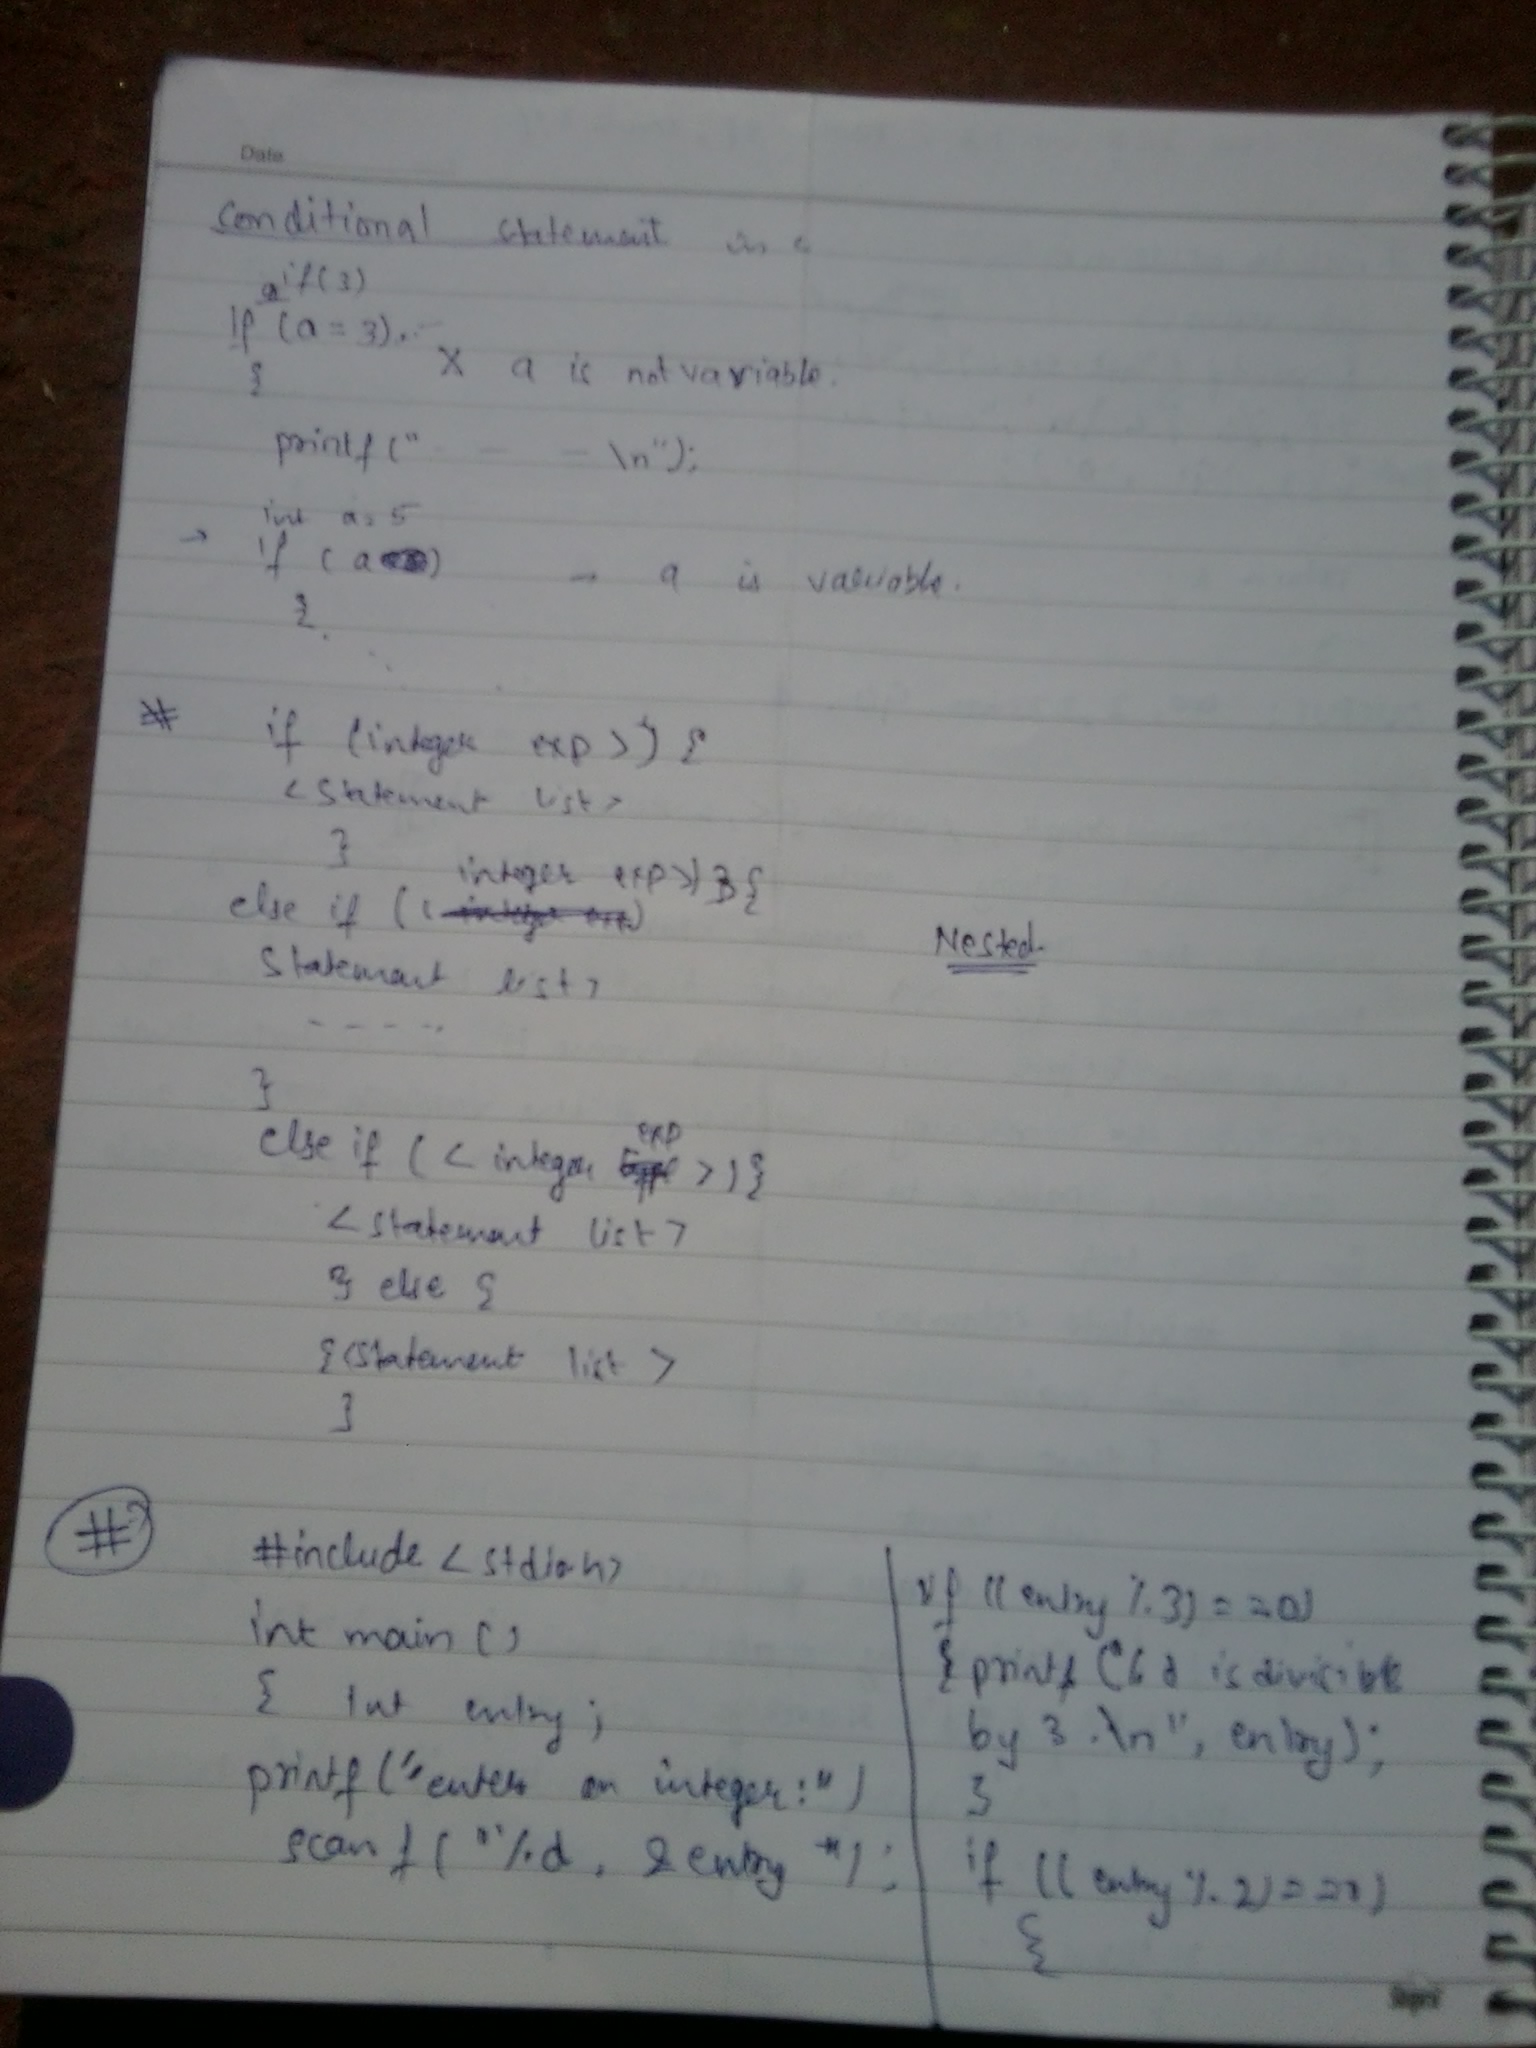 Date
conditional statement in c
a if(3)
If (a = 3).-
{ X a is not variable.
printf (" - - \n");
int a = 5
→ if ( a ) → a is variable.
{
* if (integer exp >) {
< Statement list >
}
integer exp >) {
else if (<
Statement list >
Nested
- - - -
}
exp
else if ( < integer >) {
< statement list >
} else {
{<statement list >
}
# #include < stdio.h>
int main ()
{ int entry ;
printf ("enter an integer : ")
scanf ( "%d , & entry ") ;
if (( entry %. 3) = = 0)
{ printf ("% d is divisible
by 3 .\n", entry);
}
if (( entry %. 2) = = 0)
{